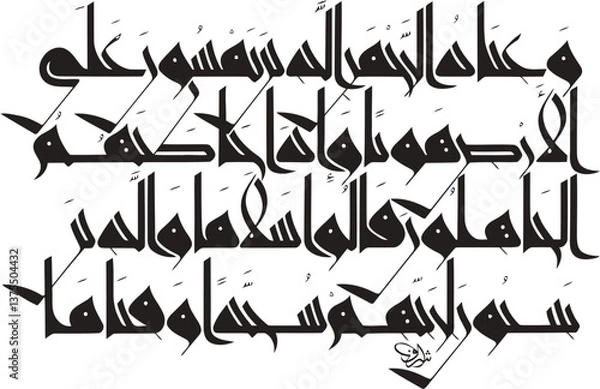 وعباد الرحمن الذين يمشون على
الأرض هونا وإذا خاطبهم
الجاهلون قالوا سلاما والذين
يبيتون لربهم سجدا وقياما
Adobe Stock | #1375504432